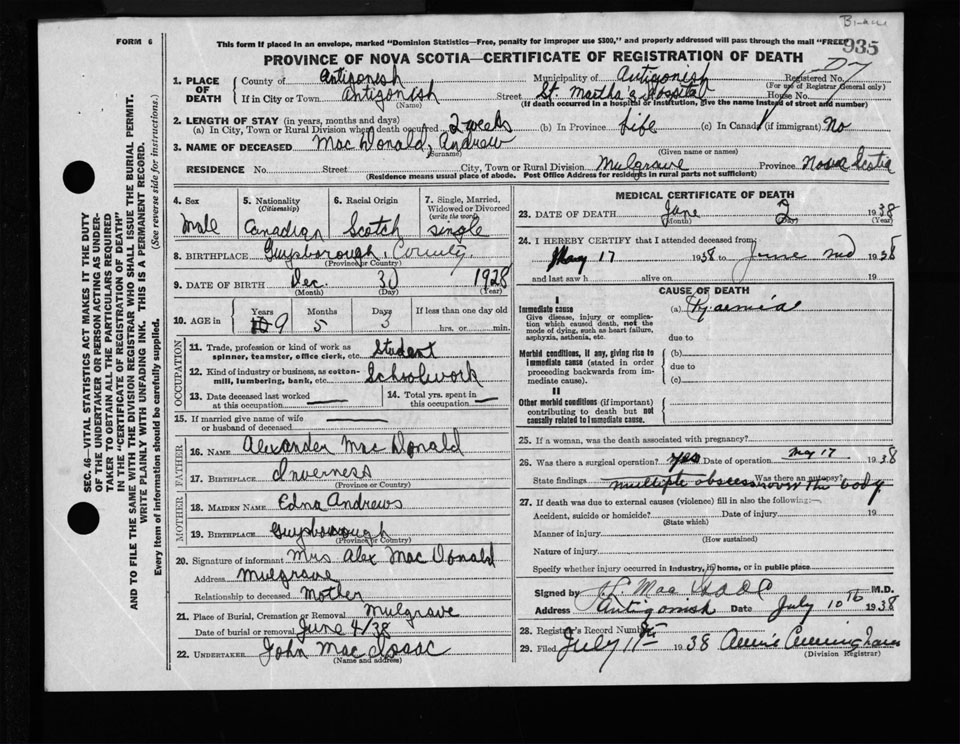 Blame
FORM 6
This form if placed in an envelope, marked "Dominion Statistics—Free, penalty for improper use $300," and properly addressed will pass through the mail "FREE"
935
PROVINCE OF NOVA SCOTIA—CERTIFICATE OF REGISTRATION OF DEATH
1. PLACE OF DEATH County of Antigonish Municipality of Antigonish Registered No. (For use of Registrar General only)
If in City or Town Antigonish (Name) Street St. Martha's Hospital House No.
(If death occurred in a hospital or institution, give the name instead of street and number)
2. LENGTH OF STAY (in years, months and days)
(a) In City, Town or Rural Division where death occurred 2 weeks (b) In Province Life (c) In Canada (if immigrant) No
3. NAME OF DECEASED Mac Donald, Andrew
(Surname) (Given name or names)
RESIDENCE No. Street City, Town or Rural Division Mulgrave Province Nova Scotia
(Residence means usual place of abode. Post Office Address for residents in rural parts not sufficient)
4. Sex Male
5. Nationality (Citizenship) Canadian
6. Racial Origin Scotch
7. Single, Married, Widowed or Divorced (write the word) Single
8. BIRTHPLACE Guysborough County
(Province or Country)
9. DATE OF BIRTH Dec. (Month) 30 (Day) 1928 (Year)
10. AGE in Years 9 Months 5 Days 3 If less than one day old hrs. or min.
OCCUPATION
11. Trade, profession or kind of work as spinner, teamster, office clerk, etc. Student
12. Kind of industry or business, as cotton-mill, lumbering, bank, etc. Schoolwork
13. Date deceased last worked at this occupation
14. Total yrs. spent in this occupation
15. If married give name of wife or husband of deceased
FATHER
16. NAME Alexander Mac Donald
17. BIRTHPLACE Inverness
(Province or Country)
MOTHER
18. MAIDEN NAME Edna Andrews
19. BIRTHPLACE Guysborough
(Province or Country)
20. Signature of informant Mrs Alex Mac Donald
Address Mulgrave
Relationship to deceased Mother
21. Place of Burial, Cremation or Removal Mulgrave
Date of burial or removal June 4/38
22. UNDERTAKER John Mac Isaac
(Name and address)
MEDICAL CERTIFICATE OF DEATH
23. DATE OF DEATH June (Month) 2 1938 (Year)
24. I HEREBY CERTIFY that I attended deceased from:
May 17 1938 to June 2nd 1938
and last saw h alive on 19
CAUSE OF DEATH
I
Immediate cause (a) Pyaemia
Give disease, injury or complication which caused death, not the mode of dying, such as heart failure, asphyxia, asthenia, etc.
due to
Morbid conditions, if any, giving rise to immediate cause (stated in order proceeding backwards from immediate cause).
(b)
due to
(c)
II
Other morbid conditions (if important) contributing to death but not causally related to immediate cause.
25. If a woman, was the death associated with pregnancy?
26. Was there a surgical operation? Yes Date of operation May 17 1938
State findings Was there an autopsy?
multiple abscess over the body
27. If death was due to external cause (violence) fill in also the following:
Accident, suicide or homicide? Date of injury 19
(State which)
Manner of injury
(How sustained)
Nature of injury
Specify whether injury occurred in industry, in home, or in public place
Signed by Mac Isaac M.D.
Address Antigonish Date July 10th 1938
28. Registrar's Record Number
29. Filed July 11th 1938 Annie Cunningham
(Division Registrar)
SEC. 46—VITAL STATISTICS ACT MAKES IT THE DUTY
OF THE UNDERTAKER OR PERSON ACTING AS UNDERTAKER TO OBTAIN ALL THE PARTICULARS REQUIRED
IN THE "CERTIFICATE OF REGISTRATION OF DEATH"
AND TO FILE THE SAME WITH THE DIVISION REGISTRAR WHO SHALL ISSUE THE BURIAL PERMIT.
WRITE PLAINLY WITH UNFADING INK. THIS IS A PERMANENT RECORD.
Every item of information should be carefully supplied. (See reverse side for instructions.)